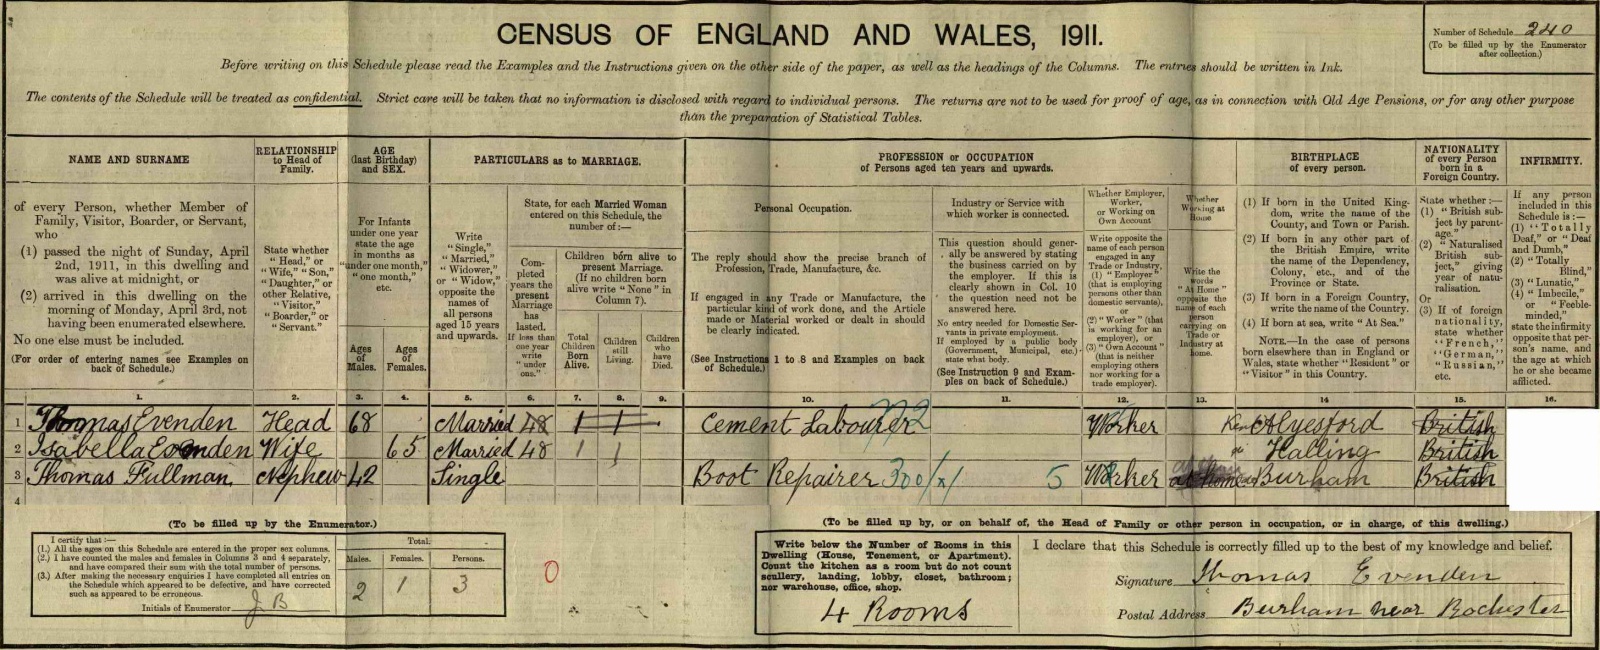 CENSUS OF ENGLAND AND WALES, 1911.
Number of Schedule 240
(To be filled up by the Enumerator
after collection.)
Before writing on this Schedule please read the Examples and the Instructions given on the other side of the paper, as well as the headings of the Columns. The entries should be written in Ink.
The contents of the Schedule will be treated as confidential. Strict care will be taken that no information is disclosed with regard to individual persons. The returns are not to be used for proof of age, as in connection with Old Age Pensions, or for any other purpose
than the preparation of Statistical Tables.
NAME AND SURNAME
of every Person, whether Member of
Family, Visitor, Boarder, or Servant,
who
(1) passed the night of Sunday, April
2nd, 1911, in this dwelling and
was alive at midnight, or
(2) arrived in this dwelling on the
morning of Monday, April 3rd, not
having been enumerated elsewhere.
No one else must be included.
(For order of entering names see Examples on
back of Schedule.)
RELATIONSHIP
to Head of
Family.
State whether
"Head," or
"Wife," "Son,"
"Daughter," or
other Relative,
"Visitor,"
"Boarder," or
"Servant."
AGE
(last Birthday)
and SEX.
For Infants
under one year
state the age
in months as
"under one month,"
"one month,"
etc.
Ages
of
Males.
Ages
of
Females.
PARTICULARS as to MARRIAGE.
Write
"Single,"
"Married,"
"Widower,"
or "Widow,"
opposite the
names of
all persons
aged 15 years
and upwards.
State, for each Married Woman
entered on this Schedule, the
number of:—
Com-
pleted
years the
present
Marriage
has
lasted.
If less than
one year
write
"under
one."
Children born alive to
present Marriage.
(If no children born
alive write "None" in
Column 7).
Total
Children
Born
Alive.
Children
still
Living.
Children
who
have
Died.
PROFESSION or OCCUPATION
of Persons aged ten years and upwards.
Personal Occupation.
The reply should show the precise branch of
Profession, Trade, Manufacture, &c.
If engaged in any Trade or Manufacture, the
particular kind of work done, and the Article
made or Material worked or dealt in should
be clearly indicated.
(See Instructions 1 to 8 and Examples on back
of Schedule.)
Industry or Service with
which worker is connected.
This question should gener-
ally be answered by stating
the business carried on by
the employer. If this is
clearly shown in Col. 10
the question need not be
answered here.
No entry needed for Domestic Ser-
vants in private employment.
If employed by a public body
(Government, Municipal, etc.)
state what body.
(See Instruction 9 and Exam-
ples on back of Schedule.)
Whether Employer,
Worker,
or Working on
Own Account
Write opposite the
name of each person
engaged in any
Trade or Industry,
(1) "Employer"
(that is employing
persons other than
domestic servants),
or
(2) "Worker" (that
is working for an
employer), or
(3) "Own Account"
(that is neither
employing others
nor working for a
trade employer).
Whether
Working at
Home
Write the
words
"At Home"
opposite the
name of each
person
carrying on
Trade or
Industry
at home.
BIRTHPLACE
of every person.
(1) If born in the United King-
dom, write the name of the
County, and Town or Parish.
(2) If born in any other part of
the British Empire, write
the name of the Dependency,
Colony, etc., and of the
Province or State.
(3) If born in a Foreign Country,
write the name of the Country.
(4) If born at sea, write "At Sea."
NOTE.—In the case of persons
born elsewhere than in England or
Wales, state whether "Resident" or
"Visitor" in this Country.
NATIONALITY
of every Person
born in a
Foreign Country.
State whether:—
(1) "British sub-
ject by parent-
age."
(2) "Naturalised
British sub-
ject," giving
year of natu-
ralisation.
Or
(3) If of foreign
nationality,
state whether
"French,"
"German,"
"Russian,"
etc.
INFIRMITY.
If any person
included in this
Schedule is:—
(1) "Totally
Deaf," or "Deaf
and Dumb,"
(2) "Totally
Blind,"
(3) "Lunatic,"
(4) "Imbecile,"
or "Feeble-
minded,"
state the infirmity
opposite that per-
son's name, and
the age at which
he or she became
afflicted.
1. 2. 3. 4. 5. 6. 7. 8. 9. 10. 11. 12. 13. 14 15. 16.
1 Thomas Evenden Head 68 Married 48 1 1 Cement Labourer 772 Worker Kent Alyesford British
2 Isabella Evenden Wife 65 Married 48 1 1 Halling British
3 Thomas Fullman Nephew 42 Single Boot Repairer 300/x1 5 Worker at home Burham British
4
(To be filled up by the Enumerator.)
I certify that:—
(1.) All the ages on this Schedule are entered in the proper sex columns.
(2.) I have counted the males and females in Columns 3 and 4 separately,
and have compared their sum with the total number of persons.
(3.) After making the necessary enquiries I have completed all entries on
the Schedule which appeared to be defective, and have corrected
such as appeared to be erroneous.
Initials of Enumerator J B
Total.
Males. Females. Persons.
2 1 3
0
(To be filled up by, or on behalf of, the Head of Family or other person in occupation, or in charge, of this dwelling.)
Write below the Number of Rooms in this
Dwelling (House, Tenement, or Apartment).
Count the kitchen as a room but do not count
scullery, landing, lobby, closet, bathroom;
nor warehouse, office, shop.
4 Rooms
I declare that this Schedule is correctly filled up to the best of my knowledge and belief.
Signature Thomas Evenden
Postal Address Burham near Rochester